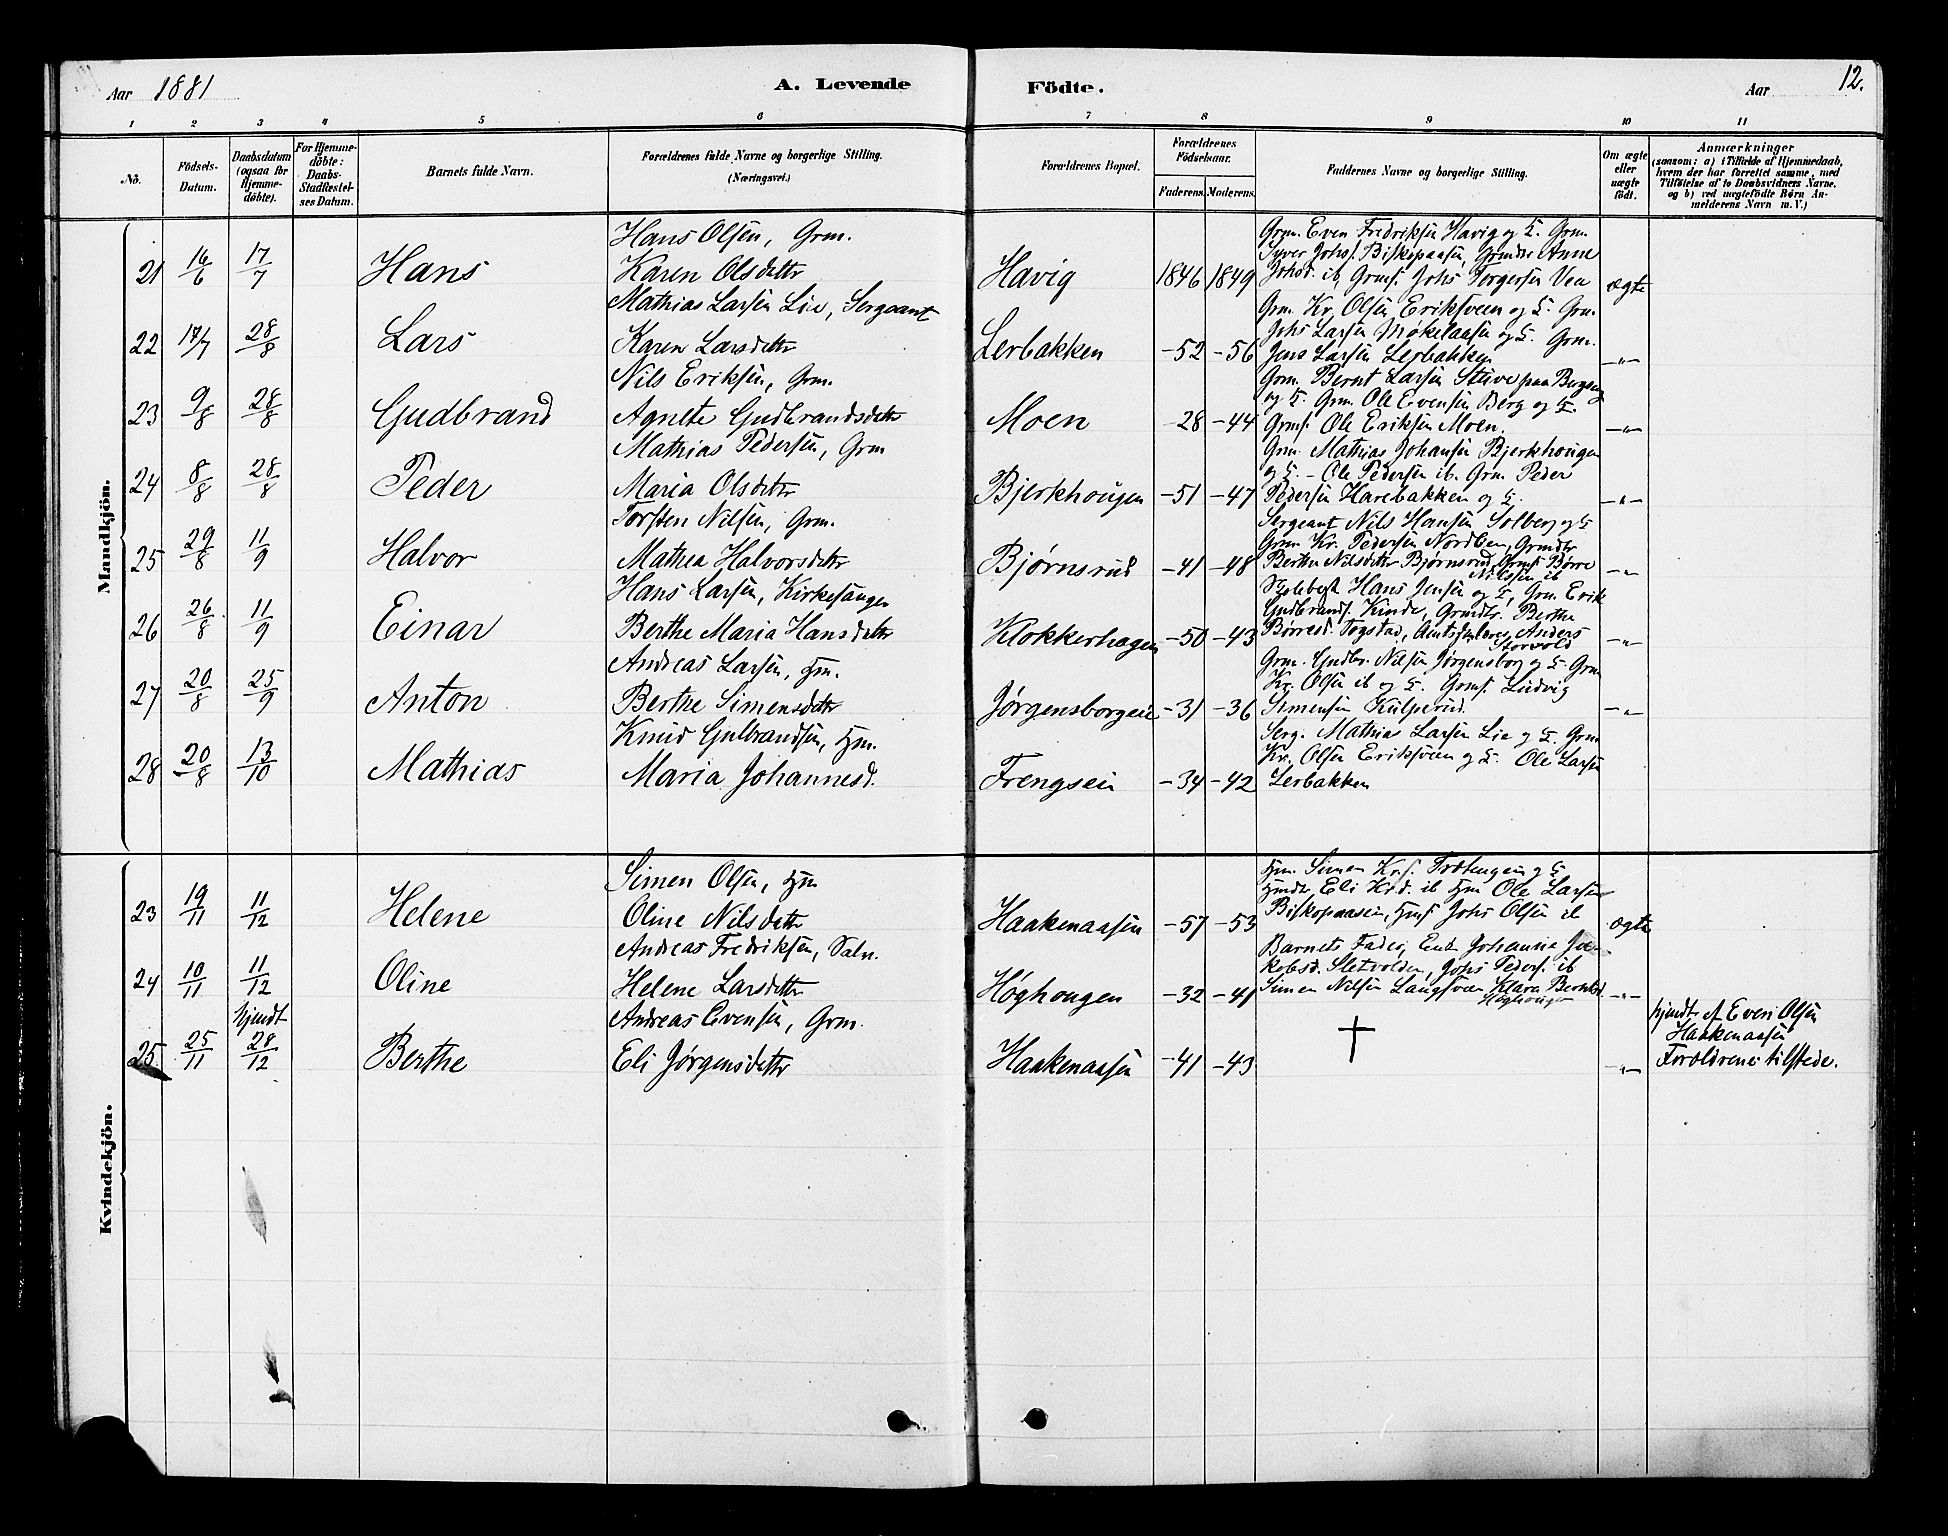 Aar 1881
A. Levende Födte.
Aar
12.
1 2 3 4 5 6 7 8 9 10 11
No.
Födsels-
Datum.
Daabsdatum
(ogsaa for
Hjemme-
döbte).
For Hjemme-
döbte:
Daabs-
Stadfæstel-
ses Datum.
Barnets fulde Navn.
Forældrenes fulde Navne og borgerlige Stilling.
(Næringsvei.)
Forældrenes Bopæl.
Forældrenes
Födselsaar.
Faderens. Moderens.
Faddernes Navne og borgerlige Stilling.
Om ægte
eller
uægte
födt.
Anmærkninger
(saasom: a) i Tilfælde af Hjemmedaab,
hvem der har forrettet samme, med
Tilföielse af to Daabsvidners Navne,
og b) ved uegtefödte Börn An-
melderens Navn m. V.)
Mandkjön.
Hans Olsen, Grm.
21 16/6 17/7 Hans Karen Olsdatter Havig 1846 1849 ægte
Grm. Even Fredriksen Havig og K. Grm.
Syver Johs. Biskopaasen, Grmdtr Anne
Johsd. ib, Grms. Johs Torgersen Vea
Mathias Larsen Lie, Sergeant
22 17/7 28/8 Lars Karen Larsdatter Lerbakken -52 -56 -"-
Grm. Kr. Olsen Eriksveen og K. Grm.
Johs Larsen Møkelaasen og K. Grm.
Jens Larsen Lerbakken
Nils Eriksen, Grm.
23 9/8 28/8 Gudbrand Agnete Gudbrandsdatter Moen -28 -44 -"-
Grm. Bernt Larsen Stuve paa Bergseng
og K. Grm. Ole Evensen Berg og K.
Grms. Ole Eriksen Moen.
Mathias Pedersen, Grm
24 8/8 28/8 Peder Maria Olsdatter Bjerkhougen -51 -47 -"-
Grm. Mathias Johansen Bjerkhougen
og K. - Ole Pedersen ib. Grm. Peder
Pedersen Harebakken og K.
Torsten Nilsen, Grm.
25 29/8 11/9 Halvor Mathea Halvorsdatter Bjørnsrud -41 -48 -"-
Sergeant Nils Hansen Solberg og K
Grm Kr. Pedersen Nordlien, Grmdtr
Berthe Nilsdatter Bjørnsrud, Grms. Børre
Nilssen ib
Hans Larsen, Kirkesanger
26 26/8 11/9 Einar Berthe Maria Hansdatter Klokkerhagen -50 -43 -"-
Hans Jensen og K, Grm. Erik
Gudbrands. Kinde, Grmdtr. Berthe
Børresd. Togstad, Anders
Storvold
Andreas Larsen, Hm.
27 20/8 25/9 Anton Berthe Simensdatter Jørgensborgeie -31 -36 -"-
Grm. Gudbr. Nilsen Jørgensborg og K. Grm
Kr. Olsen ib og K. Grms. Ludvig
Simensen Kulperud.
Knud Gulbrandsen, Hm.
28 20/8 13/10 Mathias Maria Johannesd. Frengseie -34 -42
Serg. Mathias Larsen Lie og K Grm
Kr. Olsen Eriksveen og K. Ole Larsen
Lerbakken
Kvindekjön.
Simen Olsen, Hm
23 19/11 11/12 Helene Oline Nilsdatter Haakenaasen -57 -53 ægte
Hm. Simen Krs. og K
Hmdtr Eli Krd. ib Hm Ole Larsen
Biskopaasen, Hms. Johs Olsen ib
Andreas Fredriksen, Salm.
24 10/11 11/12 Oline Helene Larsdatter Høghougen -32 -41 -"-
Barnets Fader, Enke Johanna Ja-
kobsd. Sletvolden, Johs Peders. ib
Simen Nilsen Langsveen Klara Berntsd.
Høghougen
hjmdt
Andreas Evensen, Grm.
25. 25/11 28/12 Berthe Eli Jørgensdatter Haakenaasen -41 -43 † -"-
hjmdt af Even Olsen
Haakenaasen
Forældrene tilstede.